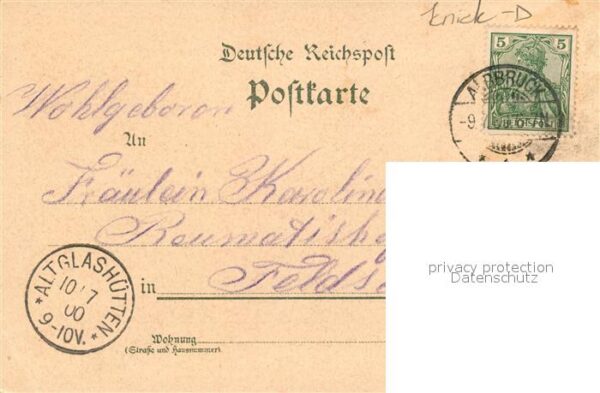 knick-D
Deutsche Reichspost
Postkarte
5 5
REICHSPOST
ALBBRUCK
-9.7.
Wohlgeboren
An
Fräulein Karolina
in Felds
ALTGLASHÜTTEN
10/7
00
9-10V.
Wohnung
(Straße und Hausnummer)
privacy protection
Datenschutz